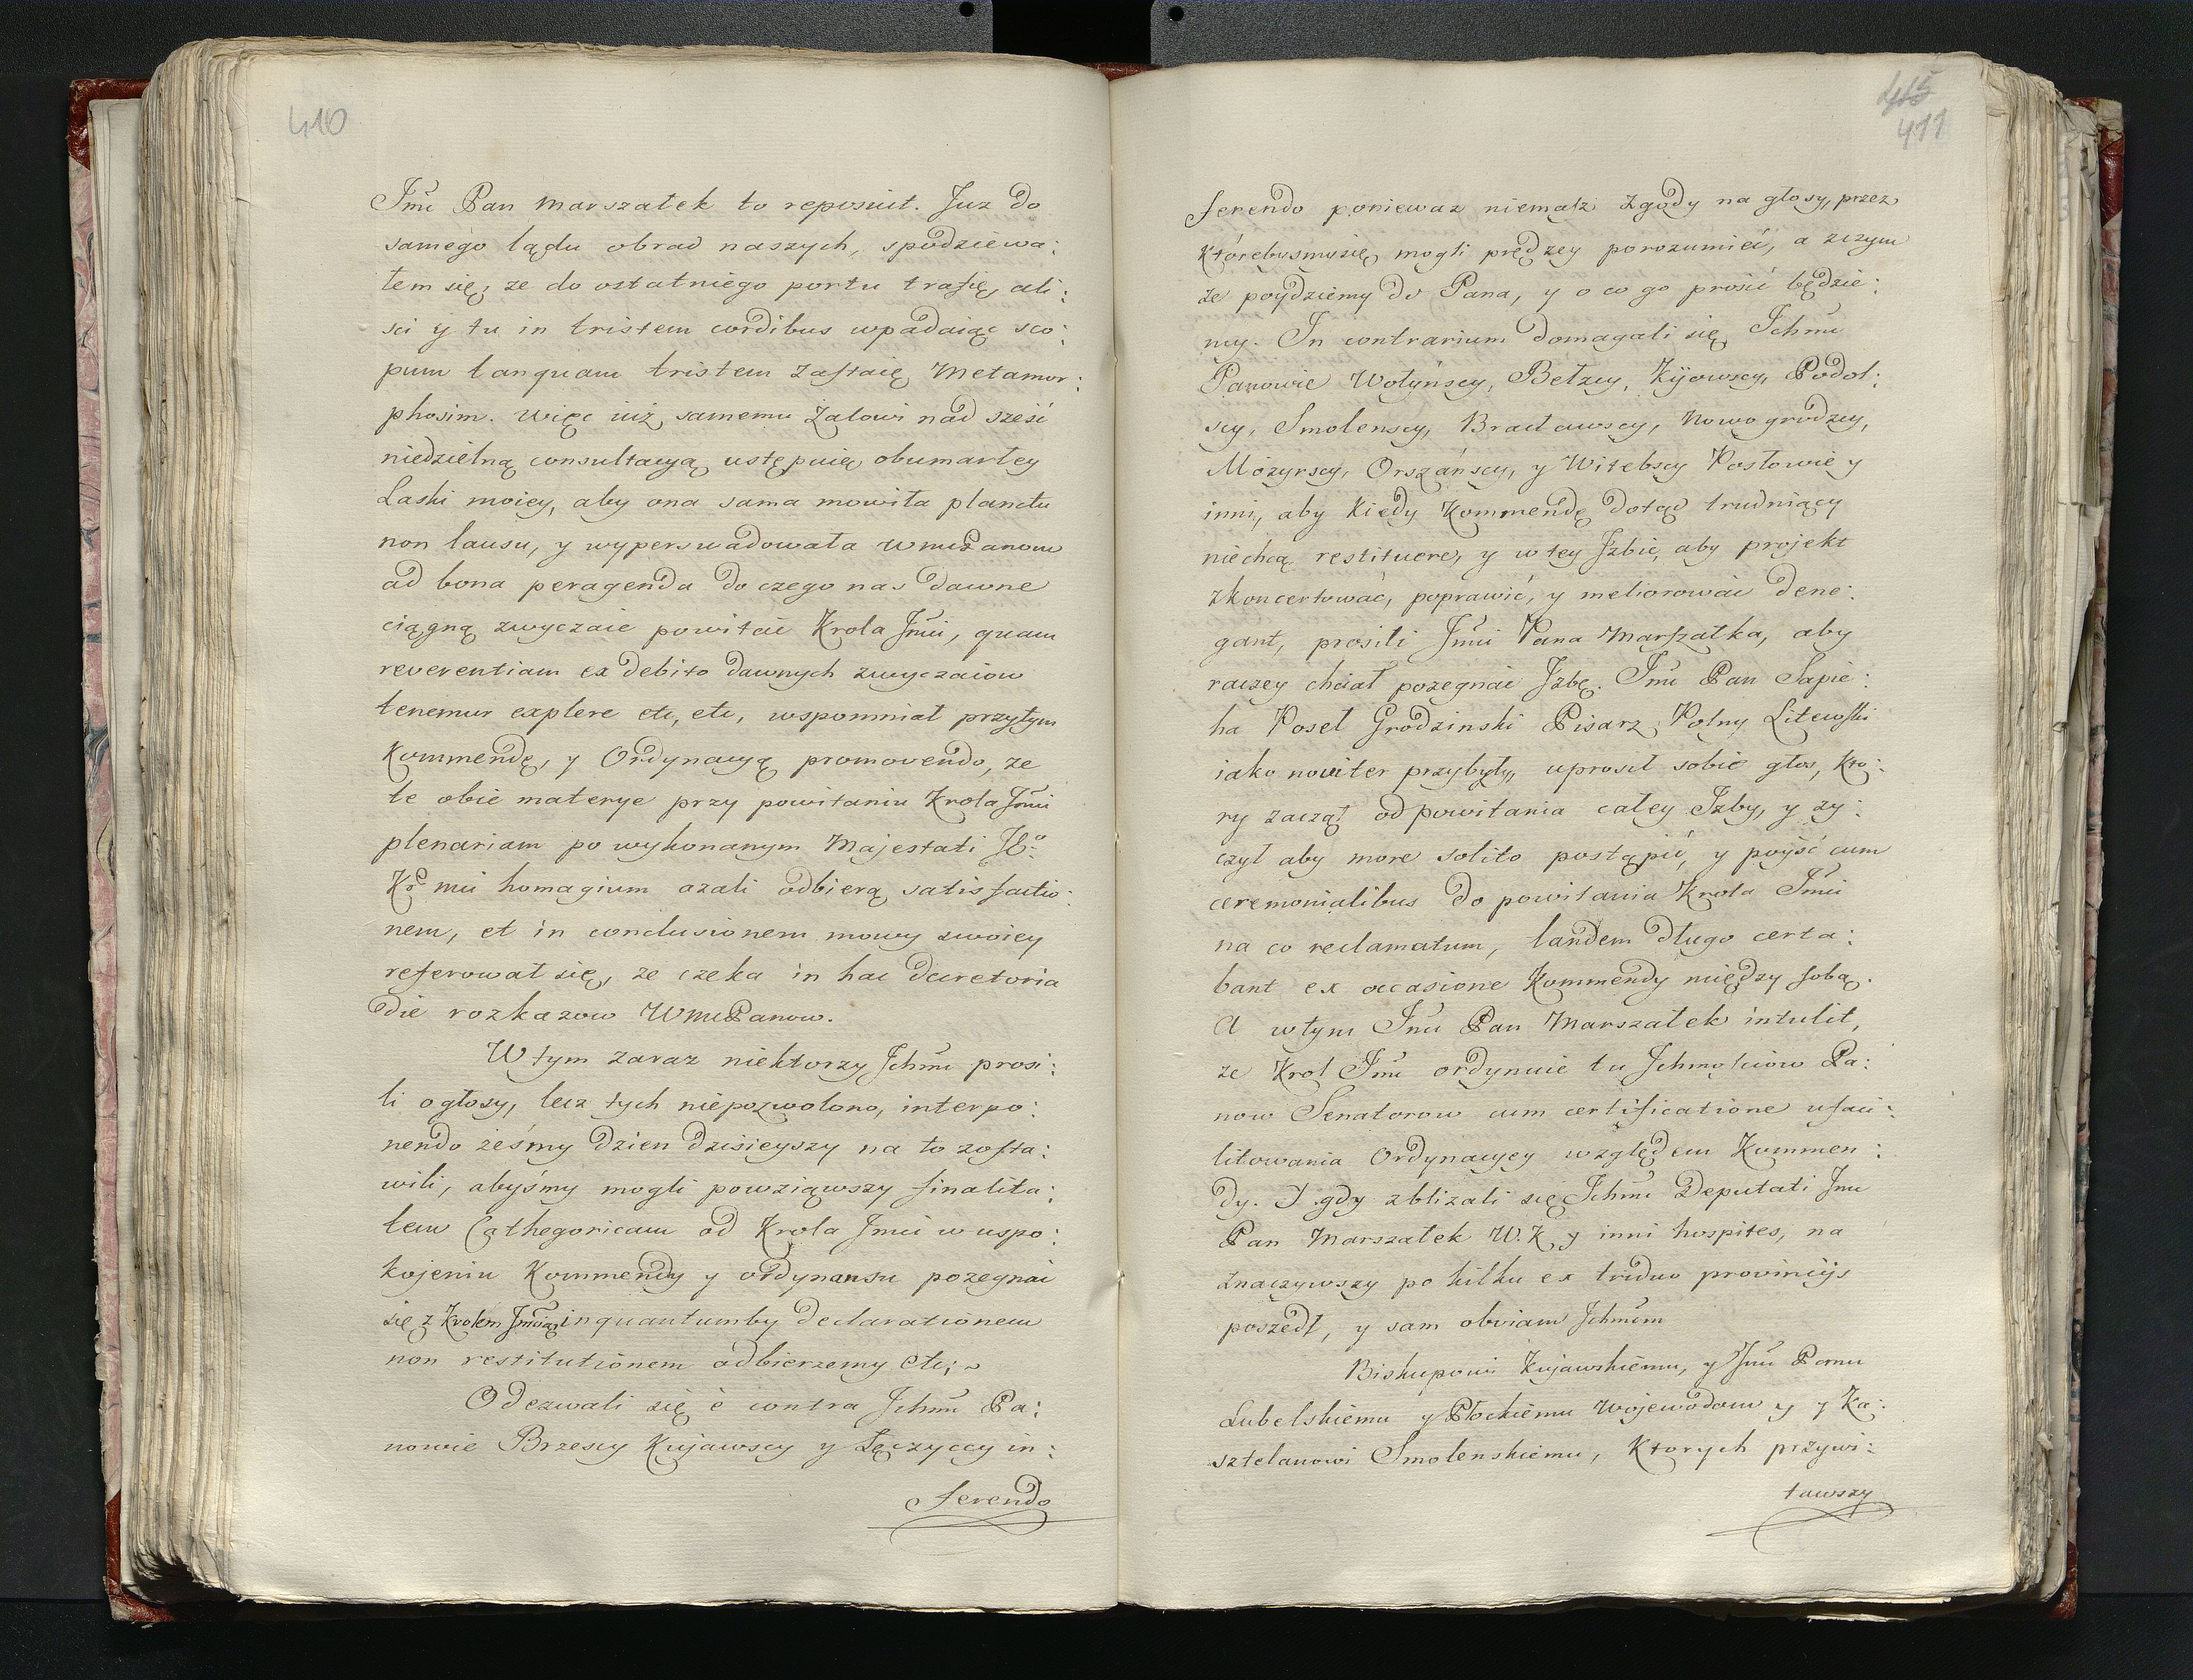 410
Jmć Pan Marszałek to reposuit. Juz do
samego lądu obrad naszych, spodziewa:
łem się, ze do ostatniego portu trafię, ali:
sci y tu in tristem cordibus wpadaiąc sco:
pum tanquam tristem zastaię Metamor:
phosim. Więc iuż samemu żalowi nad sześć
niedzielną consultacyą ustępuię obumarłey
Laski moiey, aby ona sama mowiła planctu
non lausu, y wyperswadowała WmćPanom
ad bona peragenda do czego nas dawne
ciągną zwyczaie powitać Krola Jmći, quam
reverentiam ex debito dawnych zwyczaiow
tenemur explere etc, etc, wspomniał przytym
Kommendę, y Ordynacyą promovendo, ze
te obie materye przy powitaniu Krola Jmći
plenariam po wykonanym Majestati JO
Kr mći homagium azali odbierą satisfactio:
nem, et in conclusionem mowy swoiey
referował się, ze czeka in hac decretoria
die rozkazow WmćPanow.
W tym zaraz niektorzy Ichmć prosi:
li o głosy, lecz tych niepozwolono, interpo:
nendo żeśmy dzien dzisieyszy na to zosta:
wili, abyśmy mogli powziąwszy finalita:
tem Cathegoricam od Krola Jmći w uspo:
kojeniu Kommendy y ordynansu pozegnać
się z Krolem Jmścią inquantumby declarationem
non restitutionem odbierzemy etc;
Odezwali się è contra Ichmć Pa:
nowie Brzescy Kujawscy y Łęczyccy in:
ferendo
415
411
ferendo poniewaz niemasz zgody na głosy, przez
którebysmysię mogli prędzey porozumieć, a zczym
ze poydziemy do Pana, y o co go prosić będzie:
my. In contrarium domagali się Ichmć
Panowie Wołyńscy, Bełzcy, Kijowscy, Podol:
scy, Smolenscy, Bracławscy, Nowogrodzcy,
Mozyrscy, Orszańscy, y Witebscy Posłowie y
inni, aby kiedy Kommendę dotąd trudniący
niechcą restituere, y w tey Izbie, aby projekt
zkoncertować, poprawić, y meliorować dene:
gant, prosili Jmći Pana Marszałka, aby
raczey chciał pozegnać Izbę. Jmć Pan Sapie:
ha Poseł Grodzinski Pisarz Polny Litewski
iako noviter przybyły, uprosił sobie głos, kto:
ry zaczął od powitania całey Izby, y zy:
czył aby more solito postąpić, y poyść cum
ceremonialibus do powitania Krola Jmći
na co reclamatum, tandem długo certa:
bant ex occasione Kommendy między sobą.
A wtym Jmć Pan Marszałek intulit,
ze Krol Jmć ordynuie tu Ichmościow Pa:
now Senatorow cum certificatione ufaci:
litowania Ordynacyey względem Kommen:
dy. I gdy zblizali się Ichmć Deputati Jmć
Pan Marszałek W.K y inni hospites, na
znaczywszy po kilku ex triduo provincijs
poszedł, y sam obviam Ichmćm
Biskupowi Kujawskiemu, y Jmć Panu
Lubelskiemu y Płockiemu Wojewodom y y Ka:
sztelanowi Smolenskiemu, Ktorych przywi:
tawszy